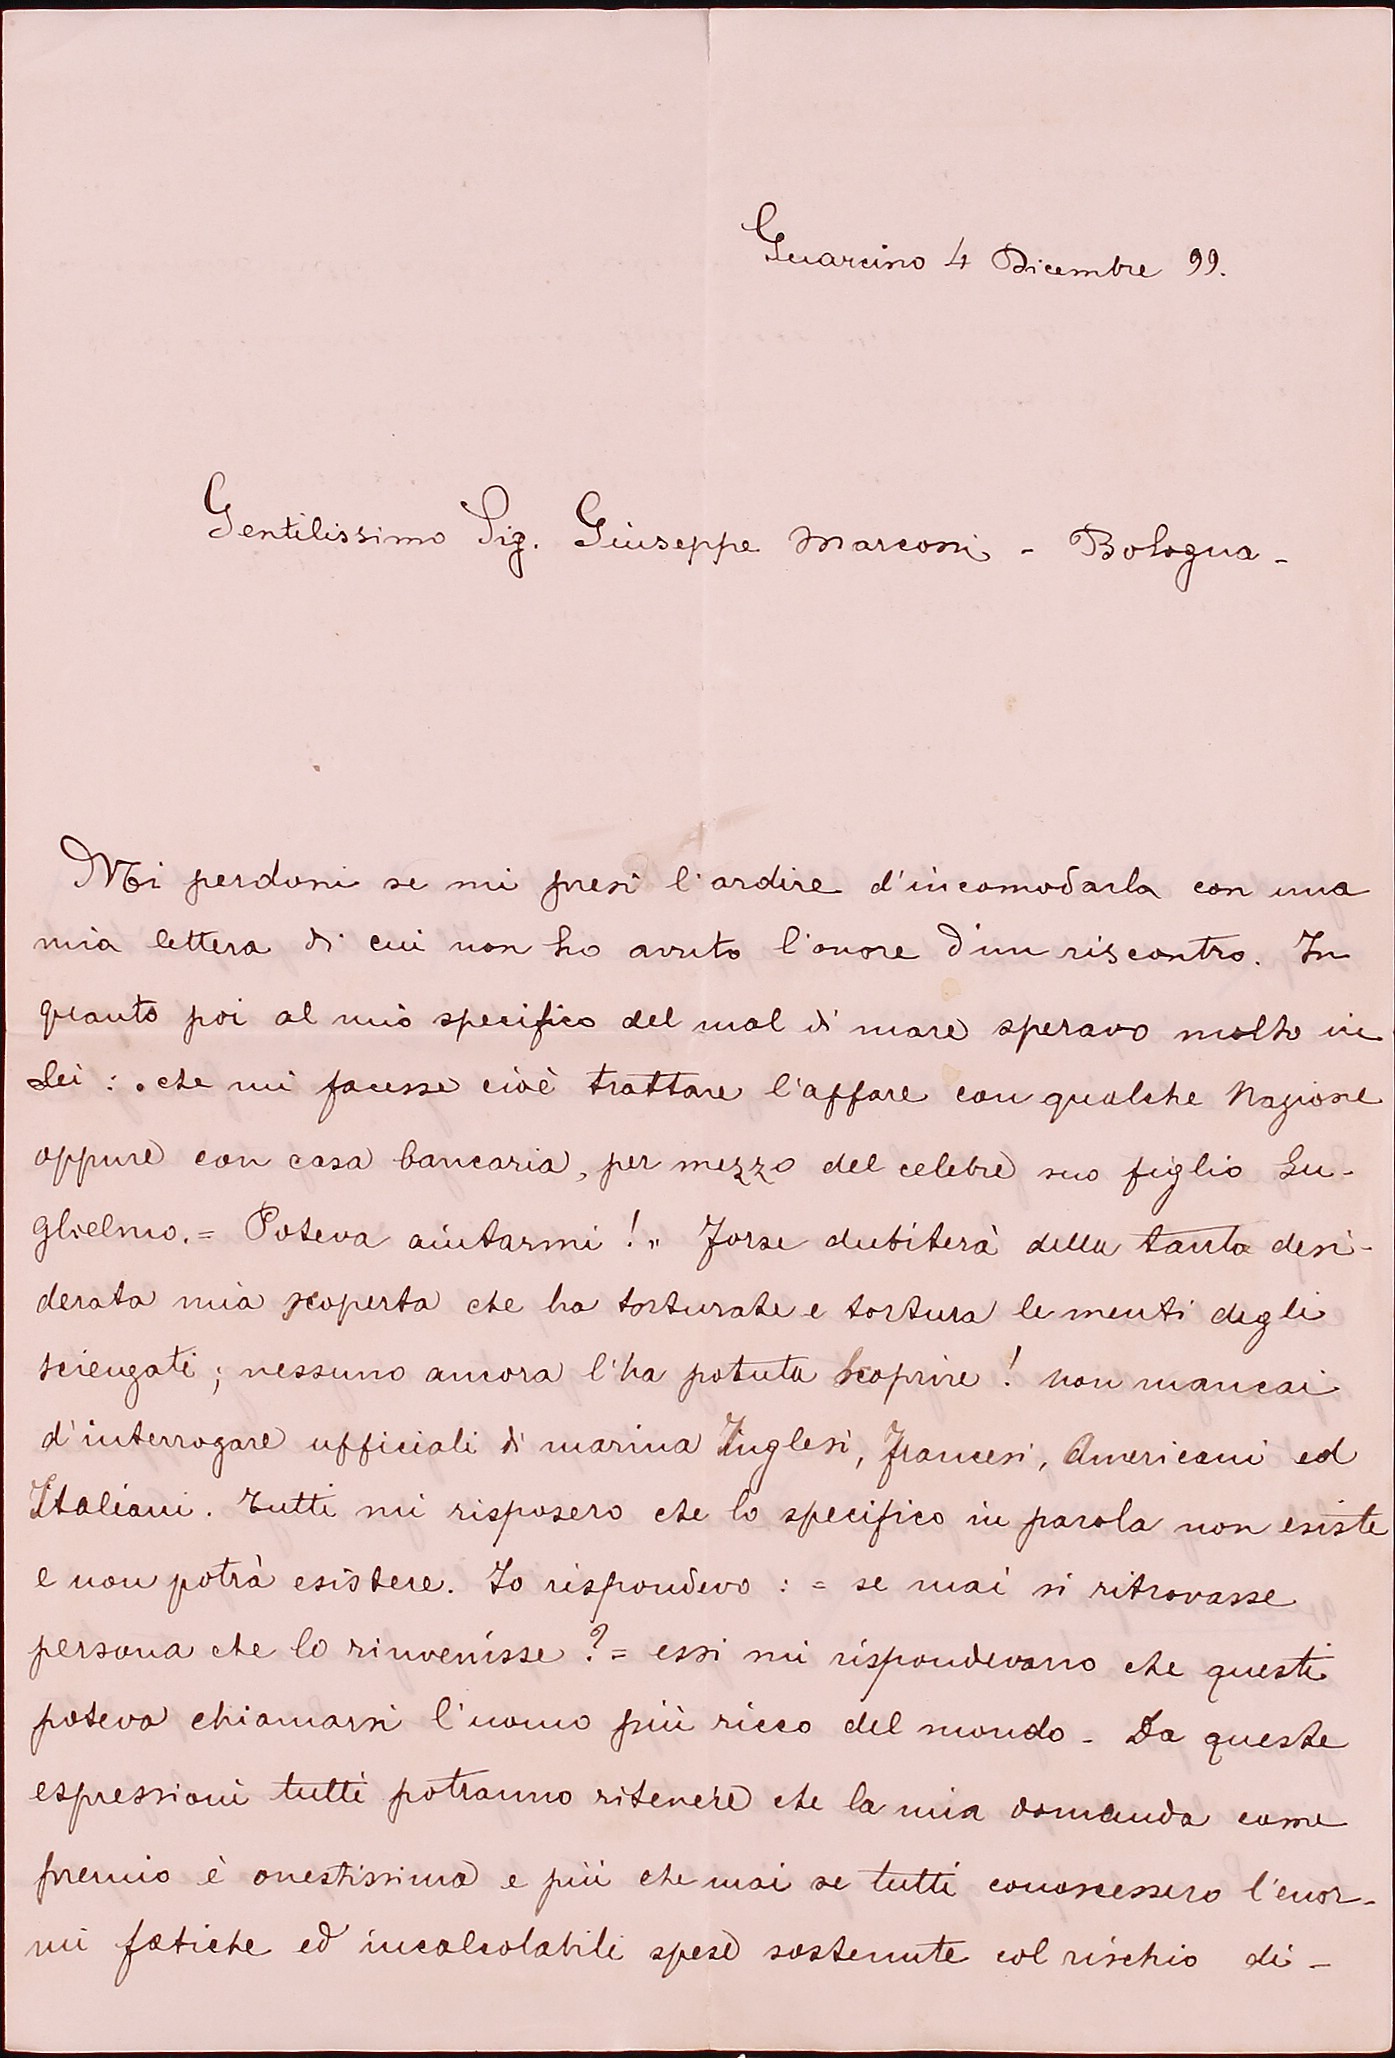 Guarcino 4 Dicembre 99.
Gentilissimo Sig. Giuseppe Marconi - Bologna -
Mi perdoni se mi presi l'ardire d'incomodarla con una
mia lettera di cui non ho avuto l'onore d'un riscontro. In
quanto poi al mio specifico del mal di mare speravo molto in
Lei : che mi facesse cioè trattare l'affare con qualche Nazione
oppure con casa bancaria, per mezzo del celebre suo figlio Gu-
glielmo. = Poteva aiutarmi ! „ Forse dubiterà della tanta desi-
derata mia scoperta che ha torturate e tortura le menti degli
scienzati ; nessuno ancora l'ha potuta scoprire ! non mancai
d'interrogare ufficiali di marina Inglesi, Francesi, Americani ed
Italiani. Tutti mi risposero che lo specifico in parola non esiste
e non potrà esistere. Io rispondevo : = se mai si ritrovasse
persona che lo rinvenisse ? = essi mi rispondevano che questi
poteva chiamarsi l'uomo più ricco del mondo - Da queste
espressioni tutti potranno ritenere che la mia domanda come
premio è onestissima e più che mai se tutti conoscessero l'enor-
mi fatiche ed incalcolabili spese sostenute col rischio di -